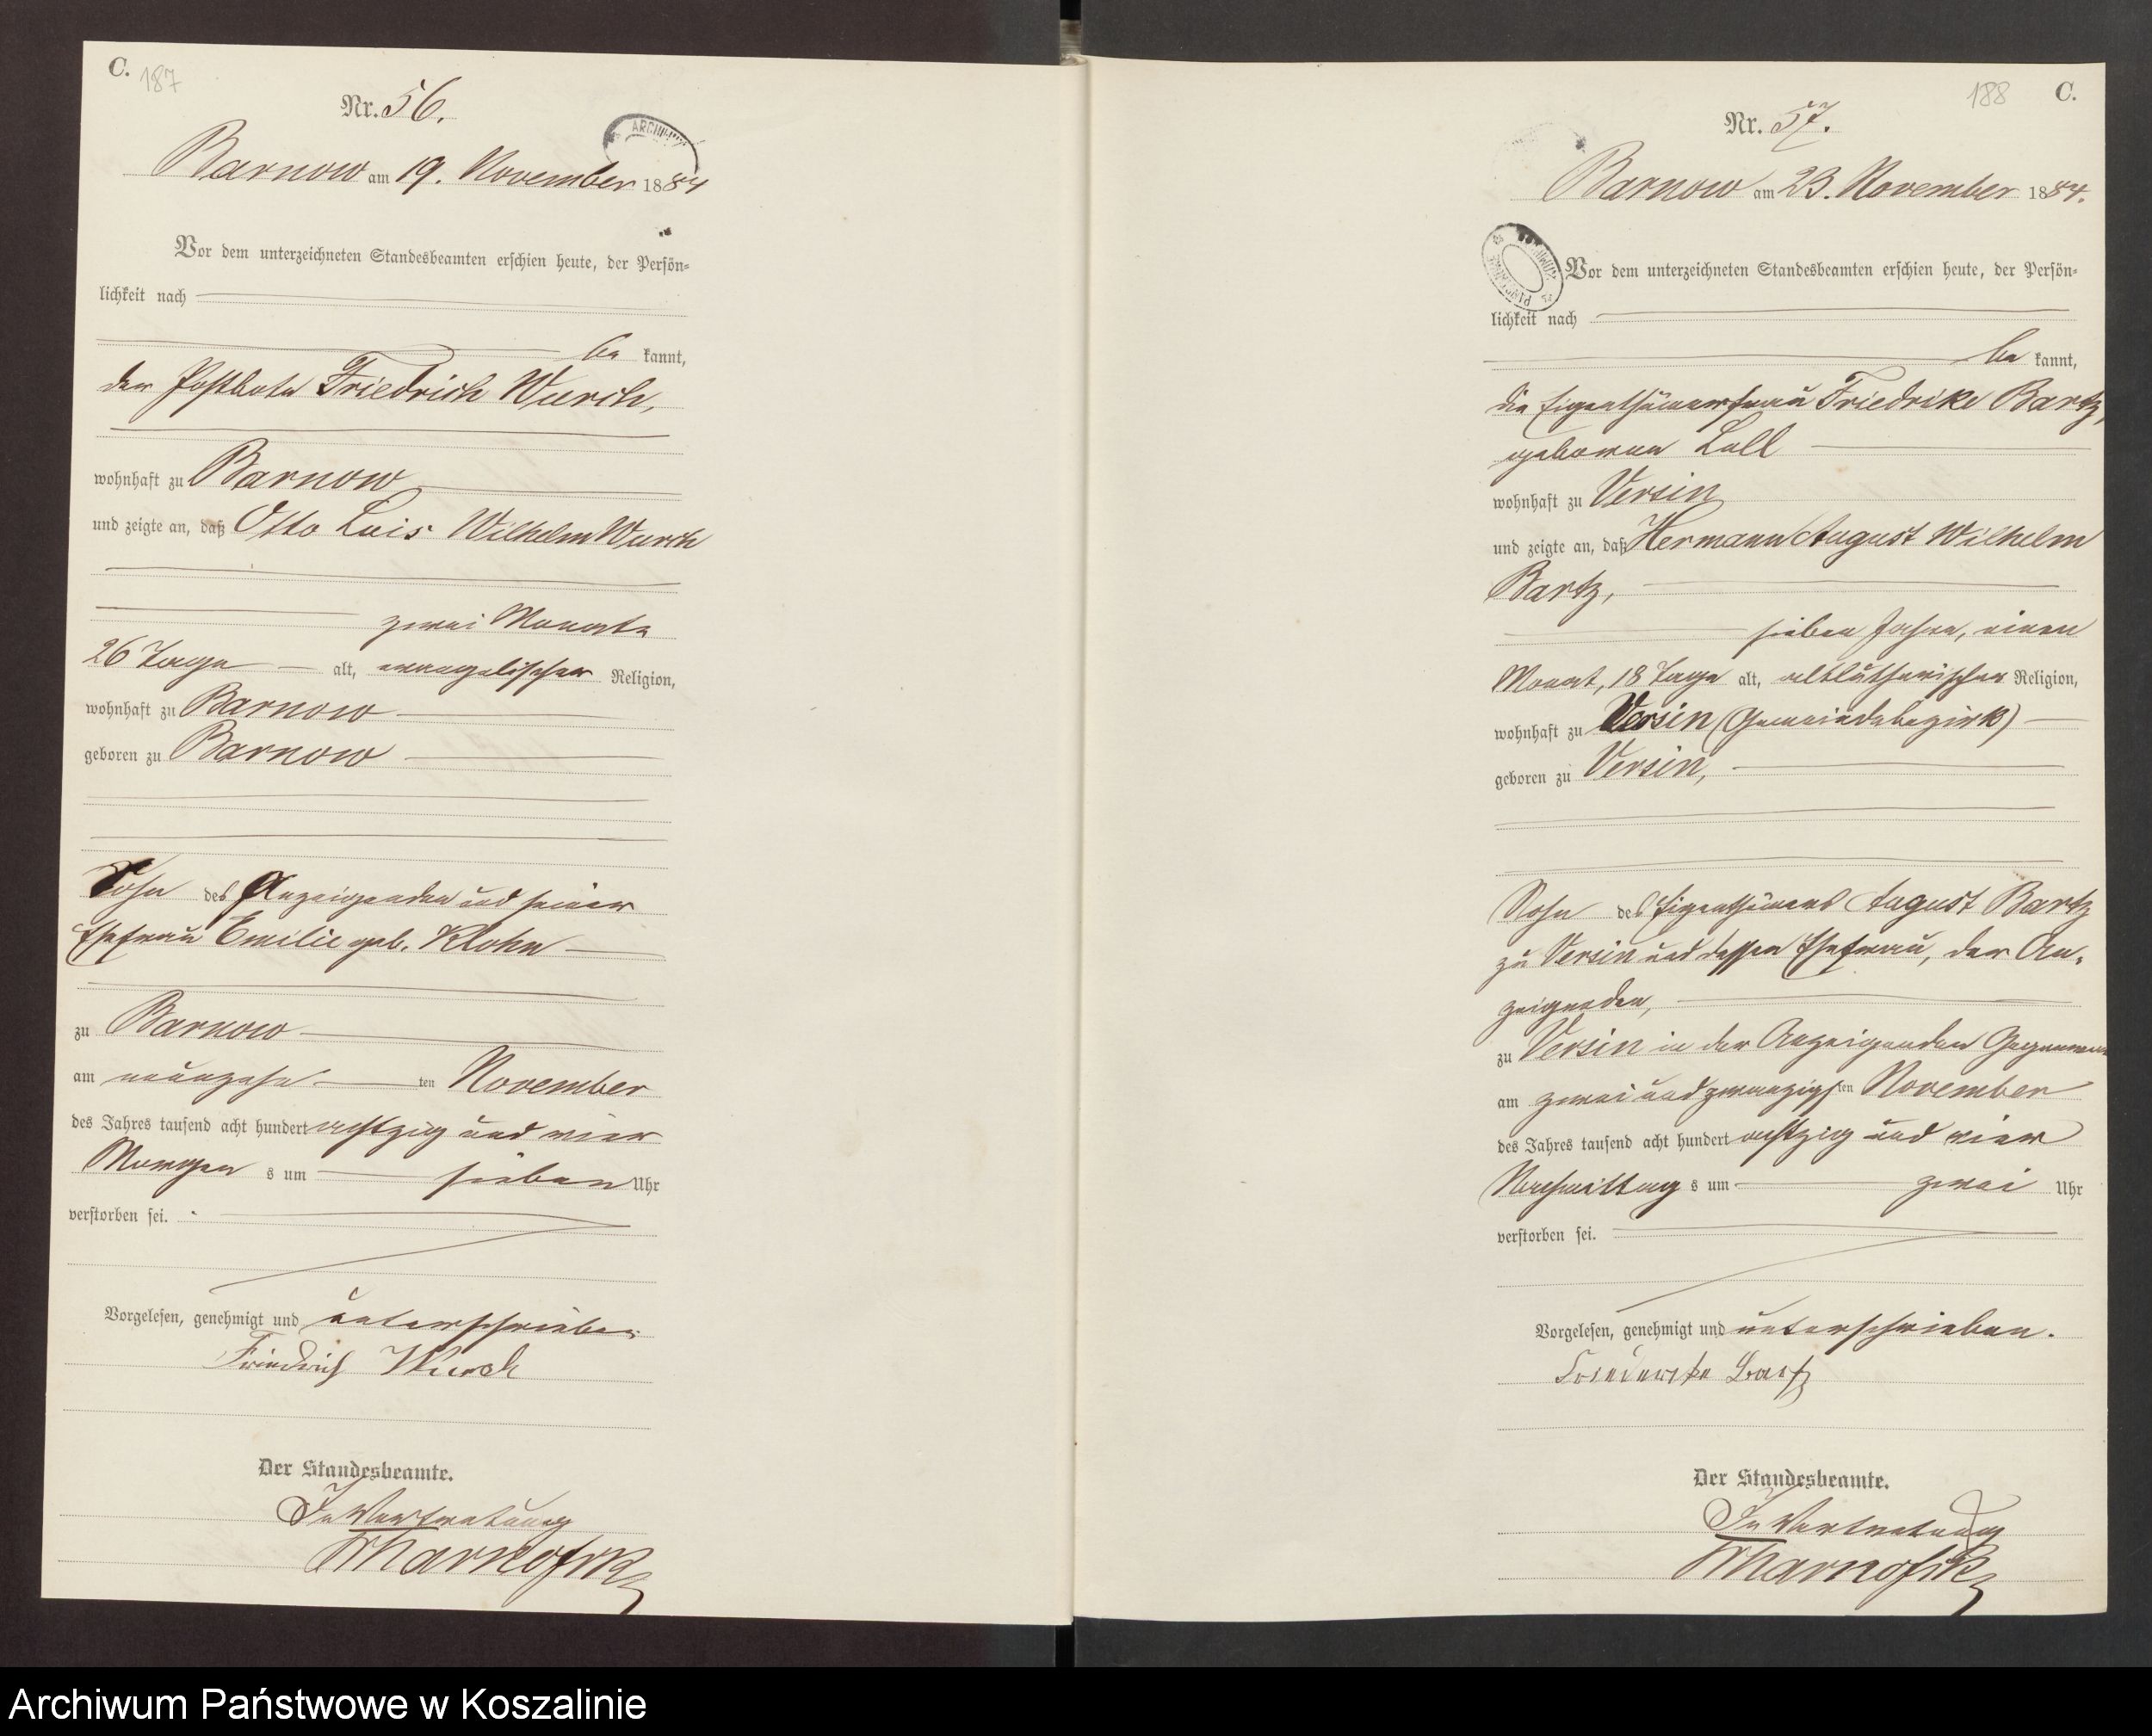 C. 187
Nr. 56.
Barnow am 19. November 1884
Vor dem unterzeichneten Standesbeamten erschien heute, der Persön-
lichkeit nach
be kannt,
der Postbote Friedrich Wurch,
wohnhaft zu Barnow
und zeigte an, daß Otto Luis Wilhelm Wurch
zwei Monate
26 Tage alt, evangelischer Religion,
wohnhaft zu Barnow
geboren zu Barnow
Sohn des Anzeigenden und seiner
Ehefrau Emilie geb. Klohn
zu Barnow
am neunzehn ten November
des Jahres tausend acht hundert achtzig und vier
Morgen s um sieben Uhr
verstorben sei.
Vorgelesen, genehmigt und unterschrieben
Friedrich Wurch
Der Standesbeamte.
In Vertretung
188 C.
Nr. 57.
Barnow am 23. November 1884.
Vor dem unterzeichneten Standesbeamten erschien heute, der Persön-
lichkeit nach
be kannt,
die Eigenthümerfrau Friedrike Bartz,
geborene Lall
wohnhaft zu Versin
und zeigte an, daß Hermann August Wilhelm
Bartz,
sieben Jahre, einen
Monat, 18 Tage alt, altlutherischer Religion,
wohnhaft zu Versin (Gemeindebezirk)
geboren zu Versin,
Sohn des Eigenthümers August Bartz
zu Versin und dessen Ehefrau, der An-
zeigenden,
zu Versin in der Anzeigenden Gegenwart
am zwei und zwanzigsten November
des Jahres tausend acht hundert achtzig und vier
Nachmittag s um zwei Uhr
verstorben sei.
Vorgelesen, genehmigt und unterschrieben.
Friederike Bartz
Der Standesbeamte.
In Vertretung
Archiwum Państwowe w Koszalinie